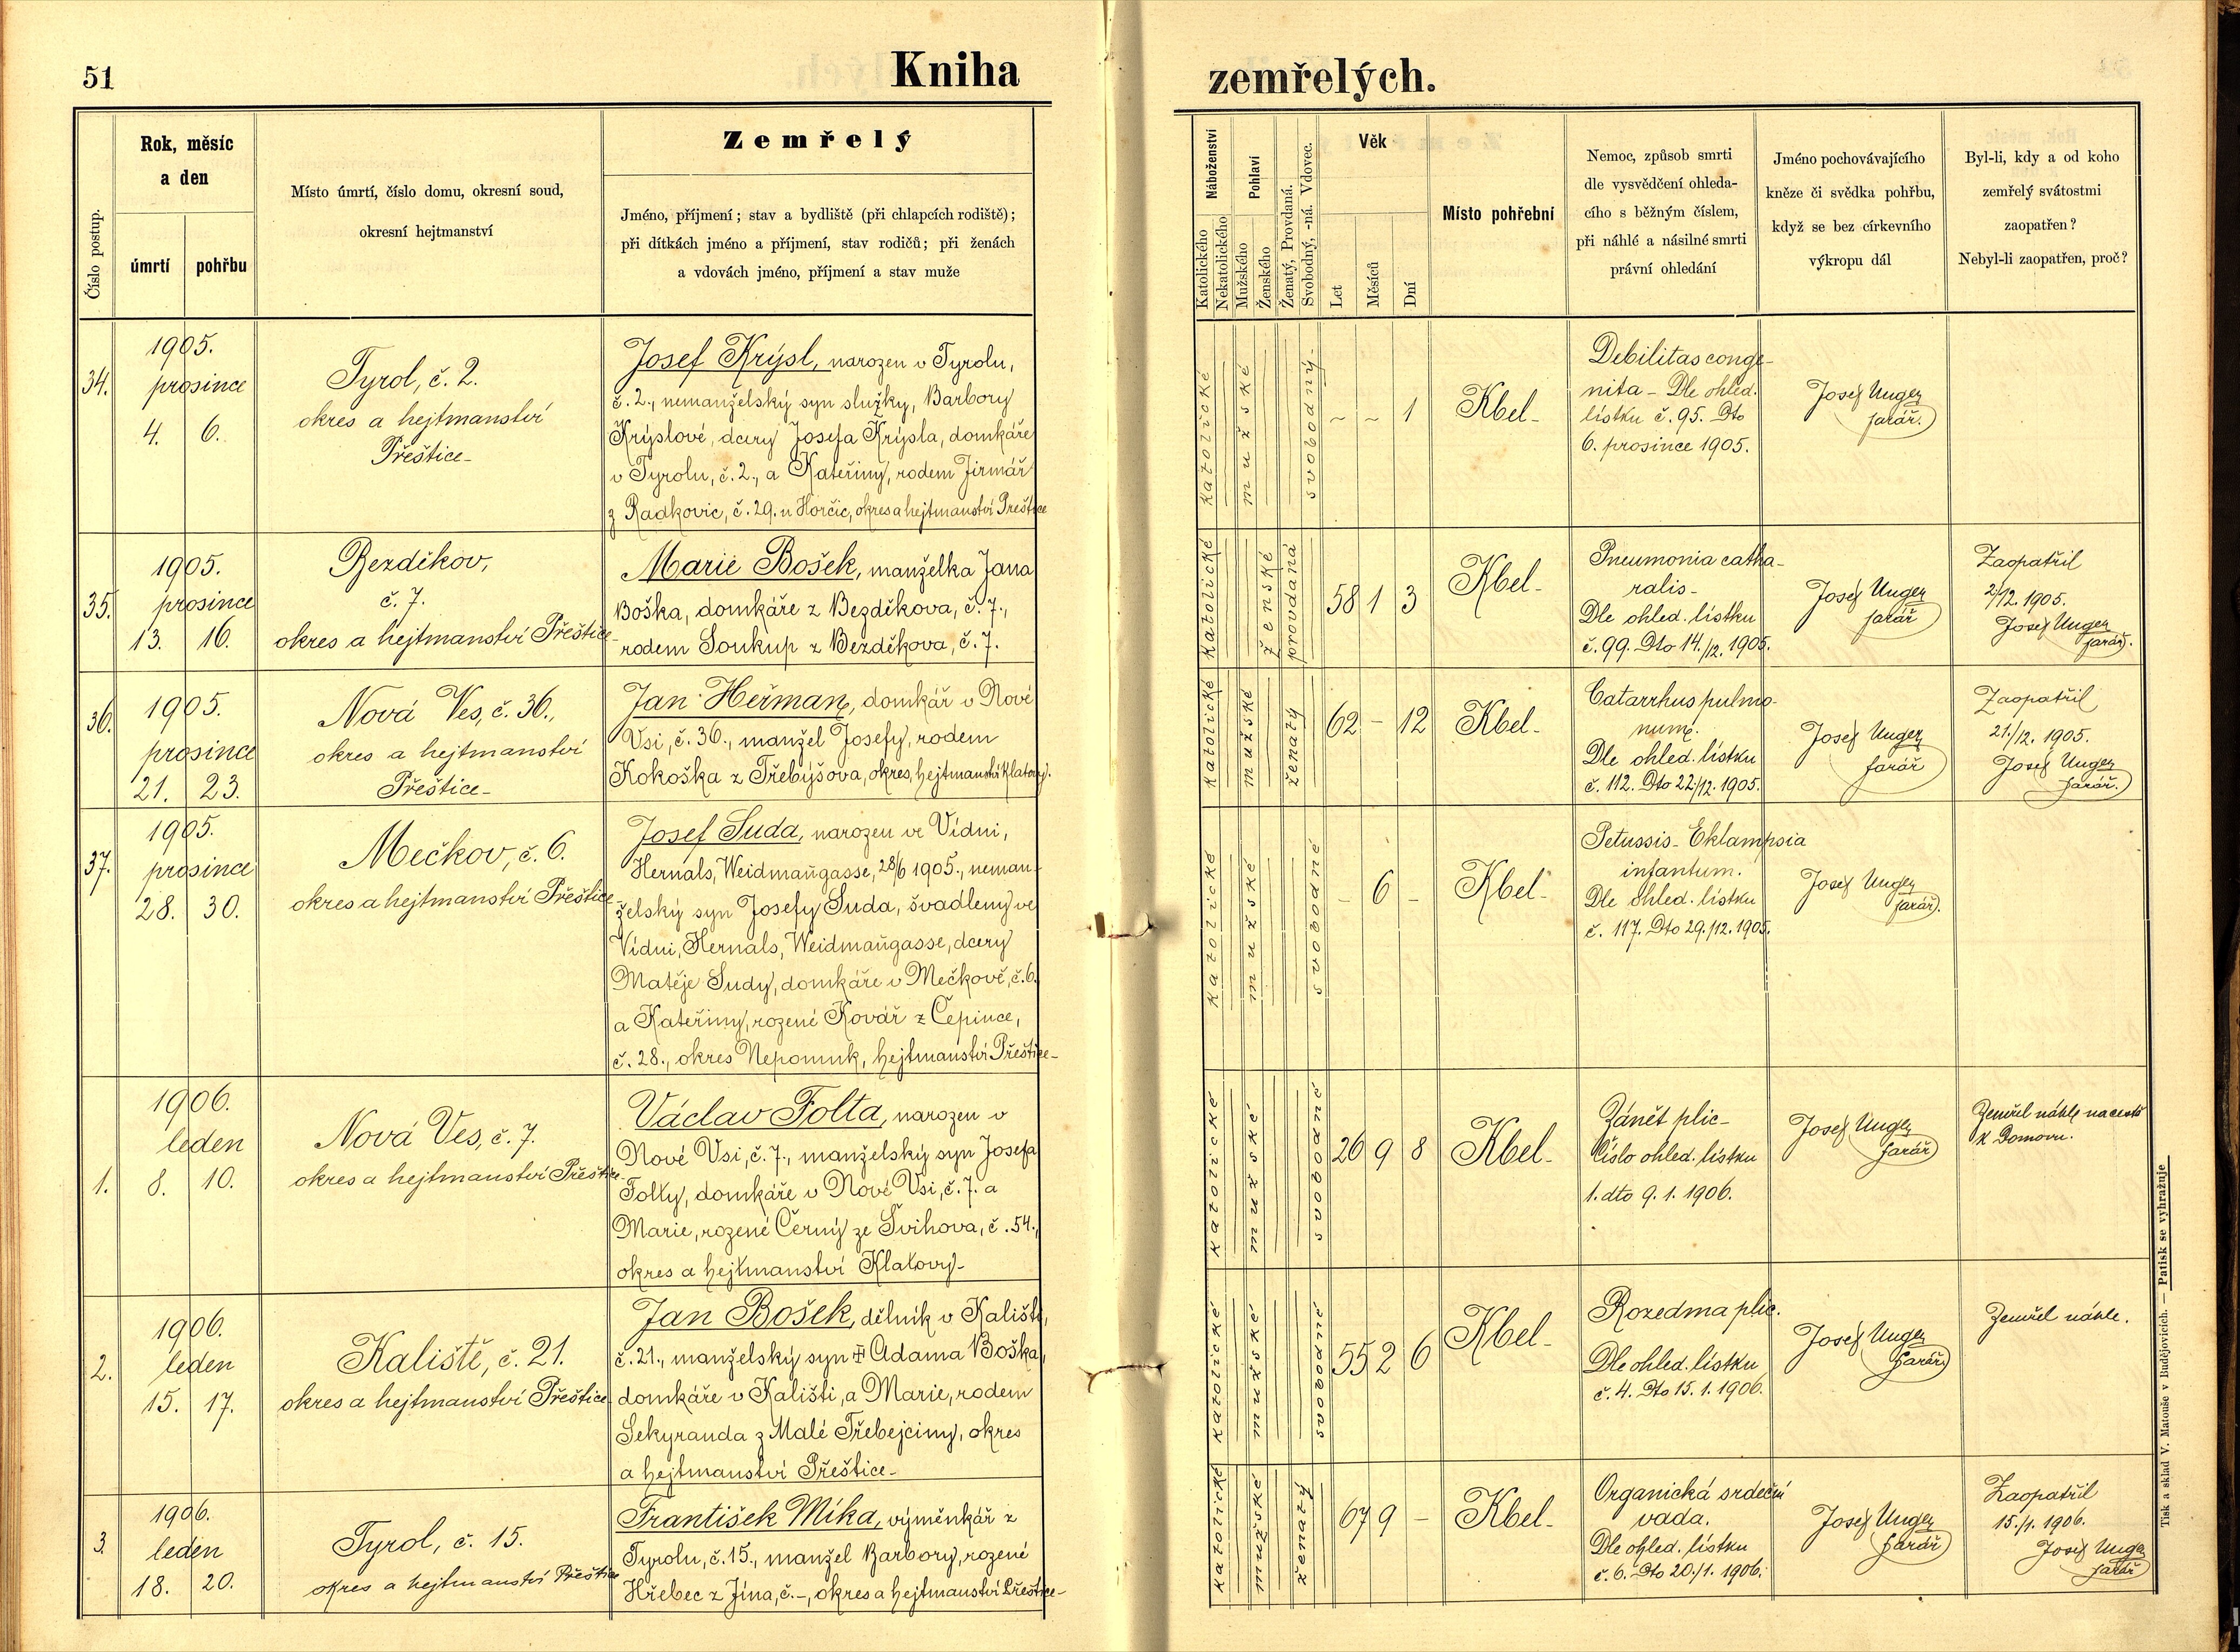 51
Kniha
zemřelých.
Číslo postup.
Rok, měsíc
a den
úmrtí
pohřbu
Místo úmrtí, číslo domu, okresní soud,
okresní hejtmanství
Zemřelý
Jméno, příjmení; stav a bydliště (při chlapcích rodiště);
při dítkách jméno a příjmení, stav rodičů; při ženách
a vdovách jméno, příjmení a stav muže
Náboženství
Katolického
Nekatolického
Pohlaví
Mužského
Ženského
Ženatý, Provdaná.
Svobodný, -ná. Vdovec.
Věk
Let
Měsíců
Dní
Místo pohřební
Nemoc, způsob smrti
dle vysvědčení ohleda-
cího s běžným číslem,
při náhlé a násilné smrti
právní ohledání
Jméno pochovávajícího
kněze či svědka pohřbu,
když se bez církevního
výkropu dál
Byl-li, kdy a od koho
zemřelý svátostmi
zaopatřen?
Nebyl-li zaopatřen, proč?
34.
1905.
prosince
4. 6.
Tyrol, č. 2.
okres a hejtmanství
Přeštice-
Josef Krýsl, narozen v Tyrolu,
č. 2., nemanželský syn služky, Barbory
Krýslové, dcery Josefa Krýsla, domkáře
v Tyrolu, č. 2., a Kateřiny, rodem Jirmář
z Radkovic, č. 29. u Horčic, okres a hejtmanství Přeštice
katolické
mužské
svobodný-
~ ~ 1
Kbel-
Debilitas conge-
nita - Dle ohled.
lístku č. 95. Dto
6. prosince 1905.
Josef Unger
farář.
35.
1905.
prosince
13. 16.
Bezděkov,
č. 7.
okres a hejtmanství Přeštice-
Marie Bošek, manželka Jana
Boška, domkáře z Bezděkova, č. 7.,
rodem Soukup z Bezděkova, č. 7.
katolické
ženské
provdaná
58 1 3
Kbel-
Pneumonia catha-
ralis-
Dle ohled. lístku
č. 99. Dto 14./12. 1905.
Josef Unger
farář
Zaopatřil
2/12. 1905.
Josef Unger
farář.
36.
1905.
prosince
21. 23.
Nová Ves, č. 36.,
okres a hejtmanství
Přeštice-
Jan Heřman, domkář v Nové
Vsi, č. 36., manžel Josefy, rodem
Kokoška z Třebýšova, okres, hejtmanství Klatovy.
katolické
mužské
ženatý
62 - 12
Kbel-
Catarrhus pulmo-
num.
Dle ohled. lístku
č. 112. Dto 22/12. 1905.
Josef Unger
farář
Zaopatřil
21./12. 1905.
Josef Unger
farář.
37.
1905.
prosince
28. 30.
Mečkov, č. 6.
okres a hejtmanství Přeštice-
Josef Suda, narozen ve Vídni,
Hernals, Weidmañgasse, 28/6 1905., neman-
želský syn Josefy Suda, švadleny ve
Vídni, Hernals, Weidmañgasse, dcery
Matěje Sudy, domkáře v Mečkově, č. 6.
a Kateřiny, rozené Kovář z Čepince,
č. 28., okres Nepomuk, hejtmanství Přeštice-
katolické
mužské
svobodné
- 6 -
Kbel-
Petussis- Eklampsia
infantum.
Dle ohled. lístku
č. 117. Dto 29./12. 1905.
Josef Unger
farář.
1.
1906.
leden
8. 10.
Nová Ves, č. 7.
okres a hejtmanství Přeštice-
Václav Folta, narozen v
Nové Vsi, č. 7., manželský syn Josefa
Folty, domkáře v Nové Vsi, č. 7. a
Marie, rozené Černý ze Švihova, č. 54.,
okres a hejtmanství Klatovy-
katolické
mužské
svobodné
26 9 8
Kbel-
Zánět plic-
Číslo ohled. lístku
1. dto 9. 1. 1906.
Josef Unger
farář
Zemřel náhle na cestě
k Domovu.
2.
1906.
leden
15. 17.
Kaliště, č. 21.
okres a hejtmanství Přeštice
Jan Bošek, dělník v Kališti,
č. 21., manželský syn ‡ Adama Boška,
domkáře v Kališti, a Marie, rodem
Sekyranda z Malé Třebejciny, okres
a hejtmanství Přeštice-
katolické
mužské
svobodné
55 2 6
Kbel-
Rozedma plic.
Dle ohled. lístku
č. 4. Dto 15. 1. 1906.
Josef Unger
farář
Zemřel náhle.
3.
1906.
leden
18. 20.
Tyrol, č. 15.
okres a hejtmanství Přeštice
František Míka, výměnkář z
Tyrolu, č. 15., manžel Barbory, rozené
Hřebec z Jína, č. -, okres a hejtmanství Přeštice-
katolické
mužské
ženatý
67 9 -
Kbel-
Organická srdeční
vada.
Dle ohled. lístku
č. 6. Dto 20./1. 1906.
Josef Unger
farář
Zaopatřil
15./1. 1906.
Josef Unger
farář
Tisk a sklad V. Matouše v Budějovicích. — Patisk se vyhražuje